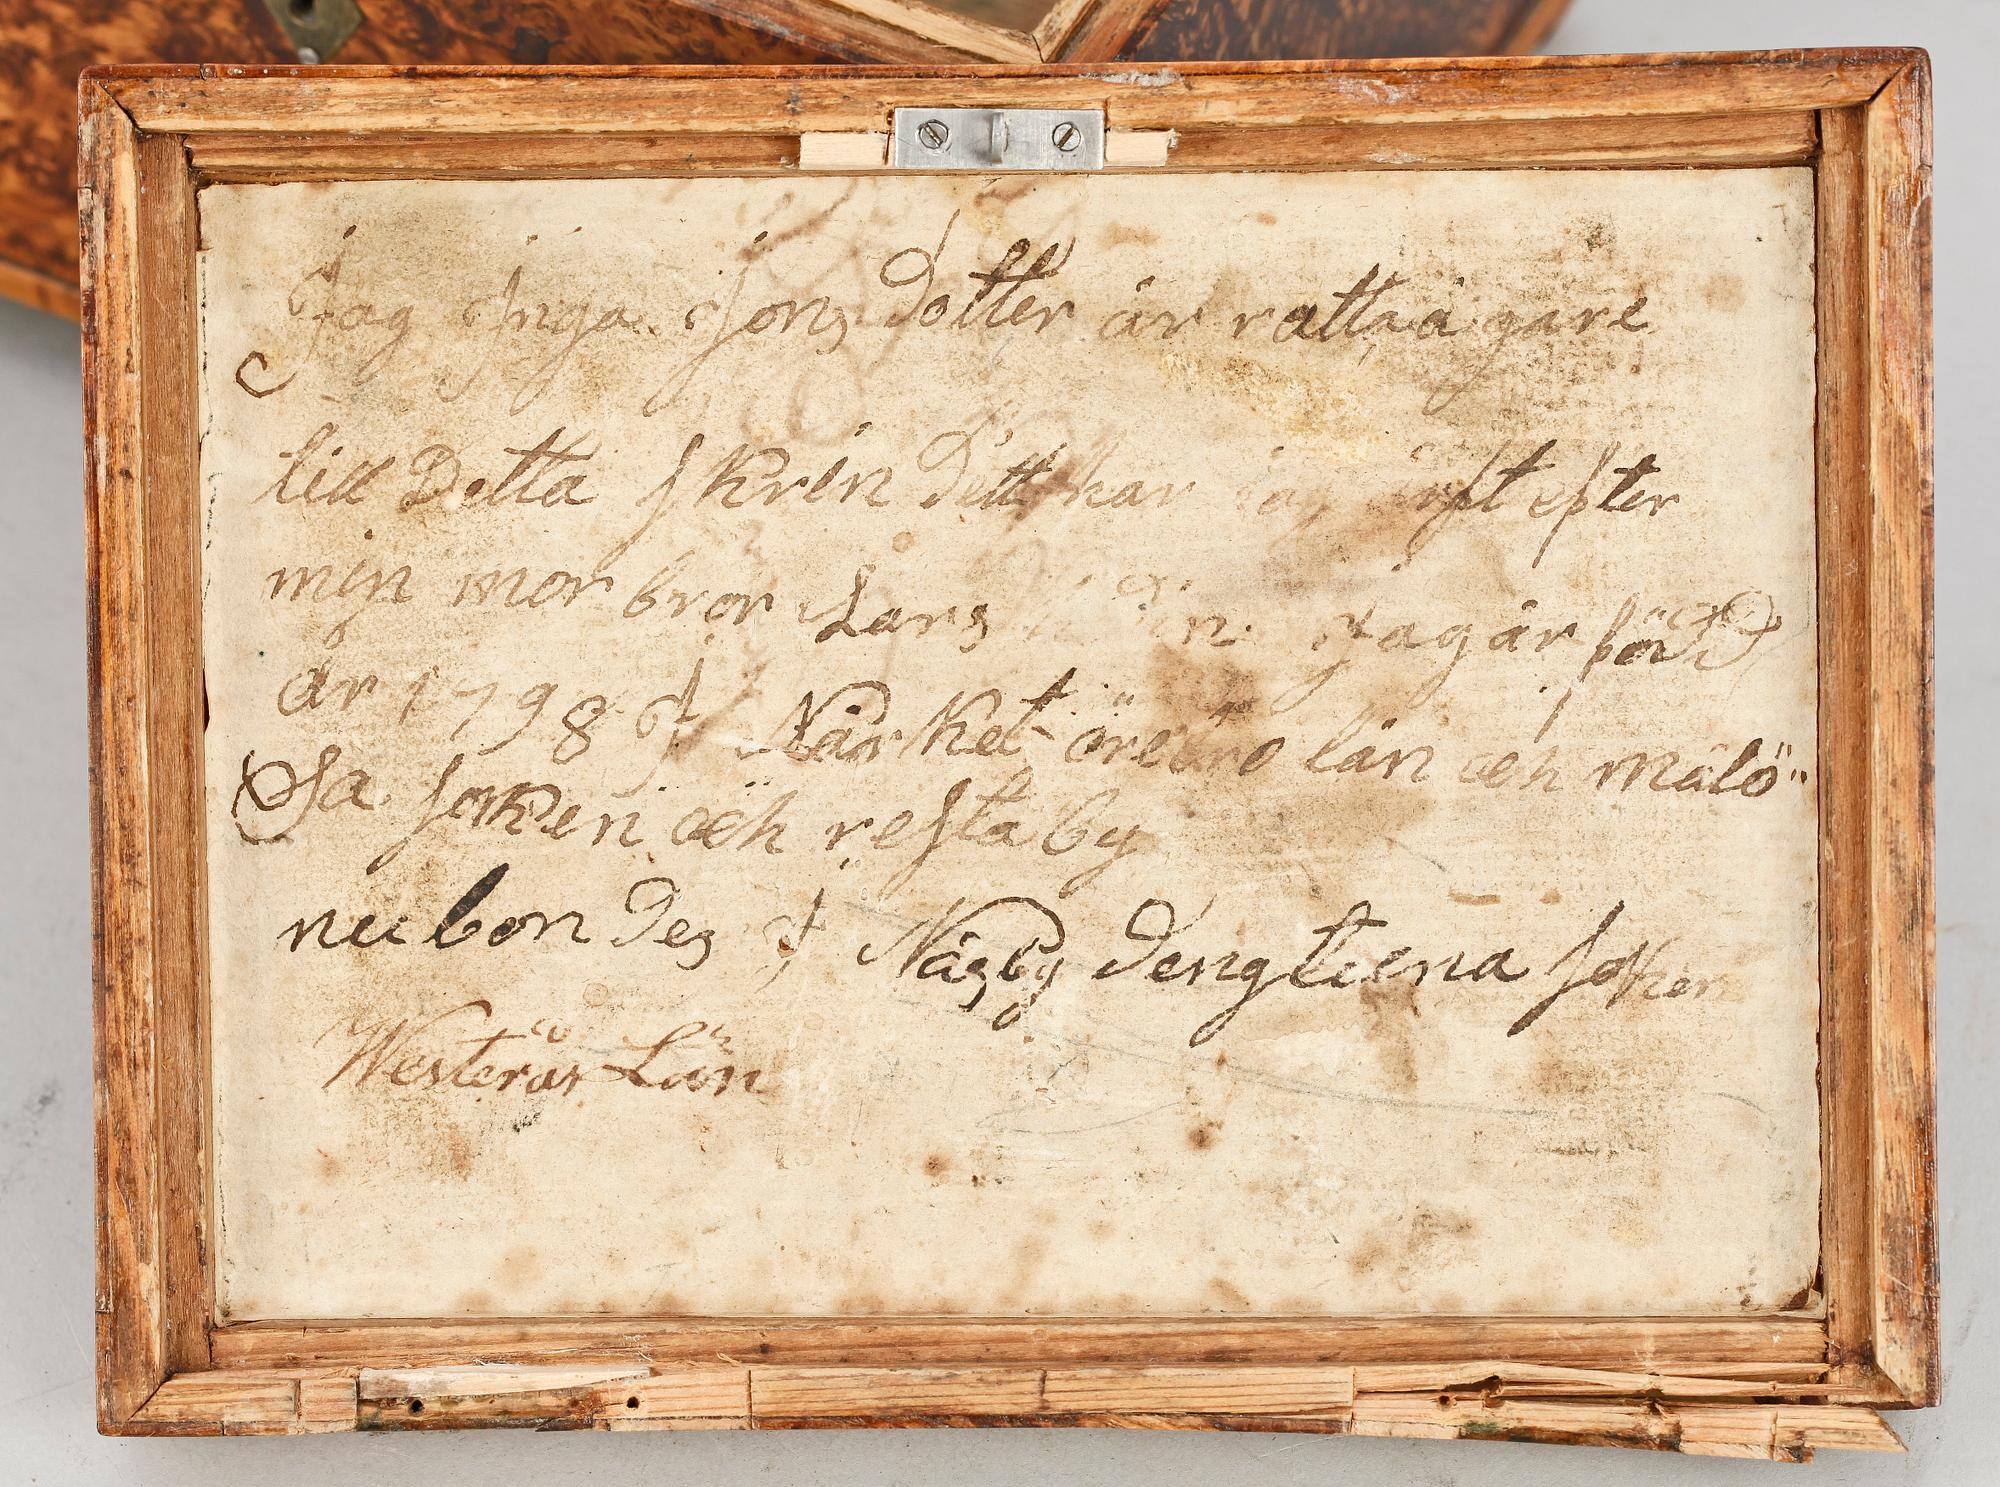 Jag Inga Jons Dotter är rätta ägare
till Detta skrin Dett har jag ärft efter
min mor bror Lars Jag är född
år 1798 I Närket örebro län och målö"
sa. soken och resta by
nu bon Des I Näsby Dengtuna soken
Westerås Län